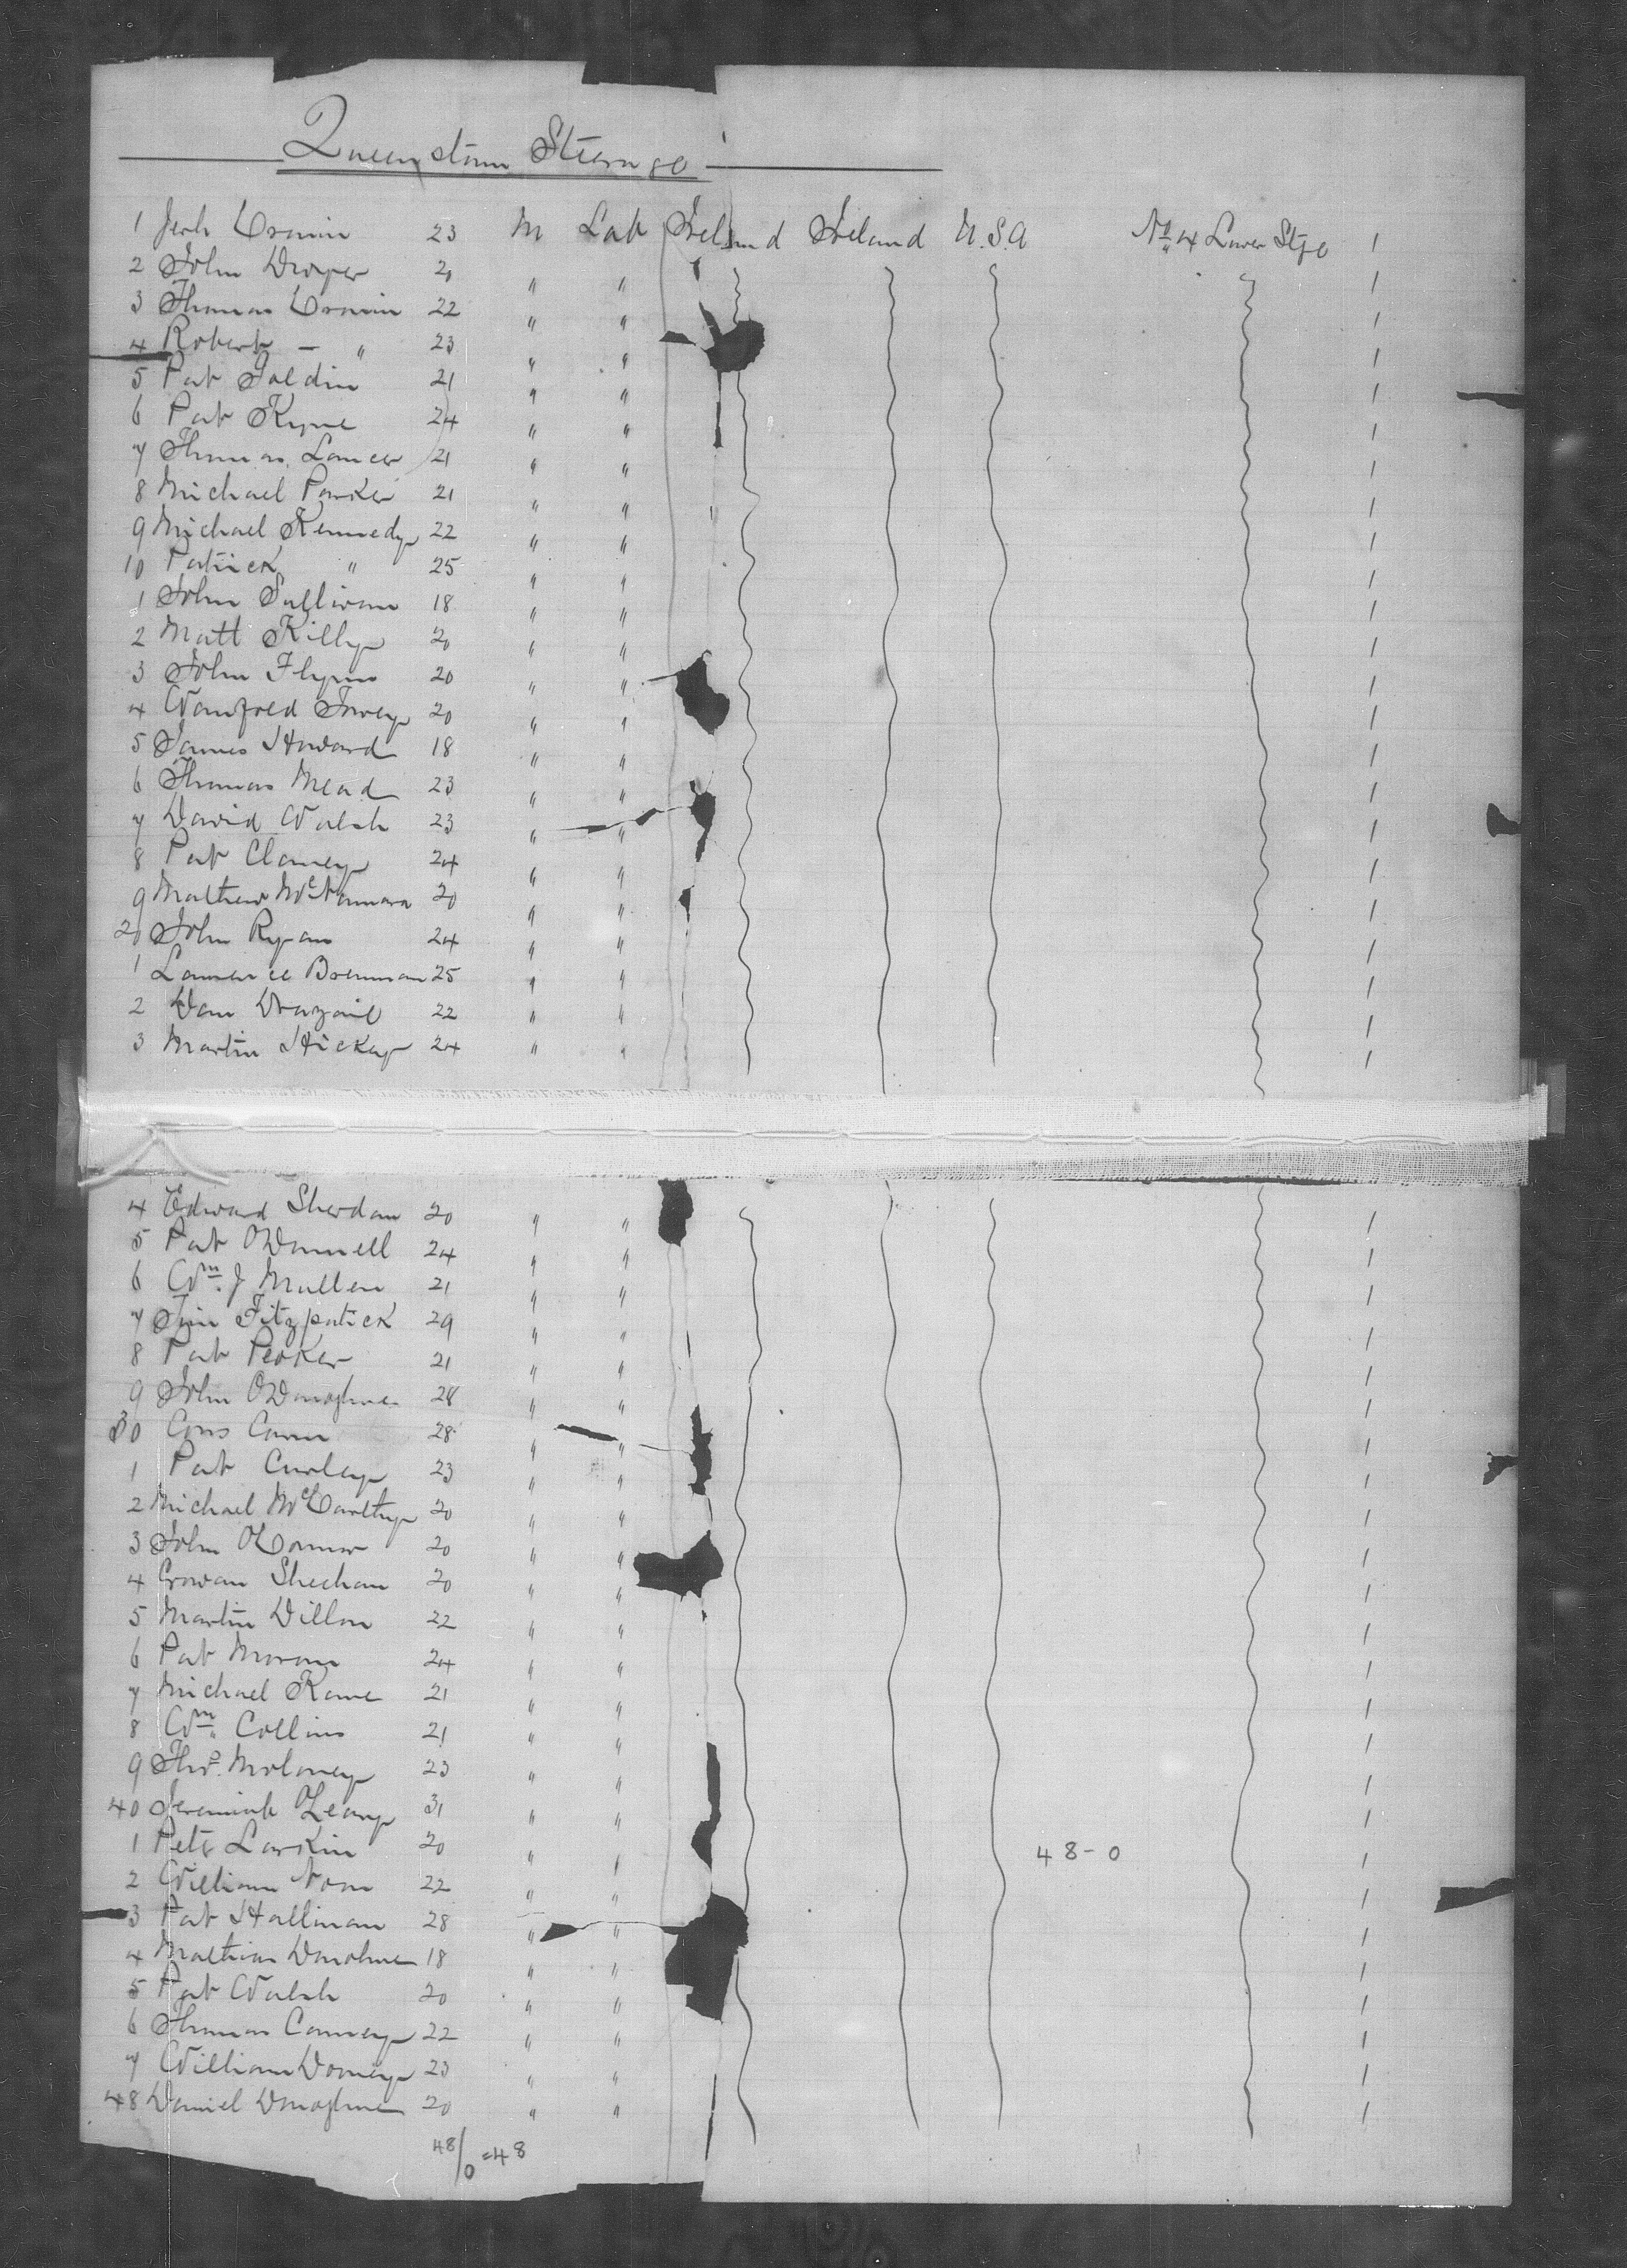 Queenstown Steerage
1 Jerh Cronin 23 M Lab Ireland Ireland U.S.A No 4 Lower Stge 1
2 John Draper 21 " " 1
3 Thomas Cronin 22 " " 1
4 Robert — " 23 " " 1
5 Pat 21 " " 1
6 Pat Kyne 24 " " 1
7 Thomas 21 " " 1
8 Michael Parker 21 " " 1
9 Michael Kennedy 22 " " 1
10 Patrick " 25 " " 1
1 John Sullivan 18 " " 1
2 Matt Killy 20 " " 1
3 John Flynn 20 " " 1
4 20 " " 1
5 James Howard 18 " " 1
6 Thomas Mead 23 " " 1
7 David Walsh 23 " " 1
8 Pat Clancy 24 " " 1
9 Mathew McNamara 20 " " 1
20 John Ryan 24 " " 1
1 Lawrence Brennan 25 " " 1
2 Dan 22 " " 1
3 Martin Hickey 24 " " 1
4 Edward Sherdan 20 " " 1
5 Pat ODonnell 24 " " 1
6 Wm J Mullen 21 " " 1
7 Jim Fitzpatick 29 " " 1
8 Pat 21 " " 1
9 John ODonoghue 28 " " 1
30 Cons 28 " " 1
1 Pat Curley 23 " " 1
2 Michael McCarthy 20 " " 1
3 John OConnor 20 " " 1
4 Sheehan 20 " " 1
5 Martin Dillon 22 " " 1
6 Pat Moran 24 " " 1
7 Michael Kane 21 " " 1
8 Wm Collins 21 " " 1
9 Thos Moloney 23 " " 1
40 Jeremiah OLeary 31 " " 1
1 Peter Larkin 20 " " 48-0 1
2 William 22 " " 1
3 Pat Hallinan 28 " " 1
4 Donohue 18 " " 1
5 Pat Walsh 20 " " 1
6 Thomas Conway 22 " " 1
7 William Downey 23 " " 1
48 Daniel Donoghue 20 " " 1
48/0 = 48